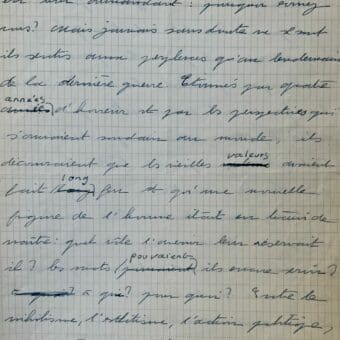 est une demandant : pourquoi écrivez
vous? Mais jamais sans doute ne se sont
ils sentis aussi perplexes qu'au lendemain
de la dernière guerre. Etonnés par quatre
années d'horreur et par les perspectives qui
s'ouvraient soudain au monde, ils
découvraient que les vieilles valeurs avaient
fait long feu et qu'une nouvelle
figure de l'homme était en train de
naître: quel rôle l'avenir leur réservait
il? les mots pouvaient ils encore servir?
à qui? pour quoi? Entre le
nihilisme, l'esthétisme, l'action politique,